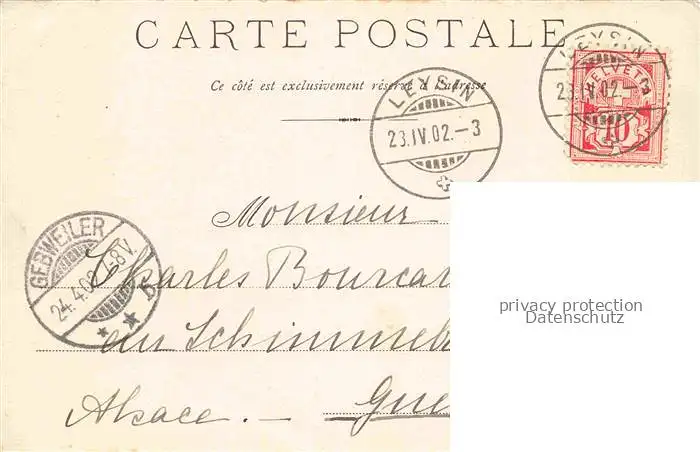 CARTE POSTALE
Ce côté est exclusivement réservé à l'adresse
LEYSIN
23.IV.02.-3
LEYSIN
23.IV.02.-
HELVETIA
10
GEBWEILER
24.4.02 7-8V.
b
Monsieur
Charles Bourcar
au Schimmel
Alsace. - Gue
privacy protection
Datenschutz